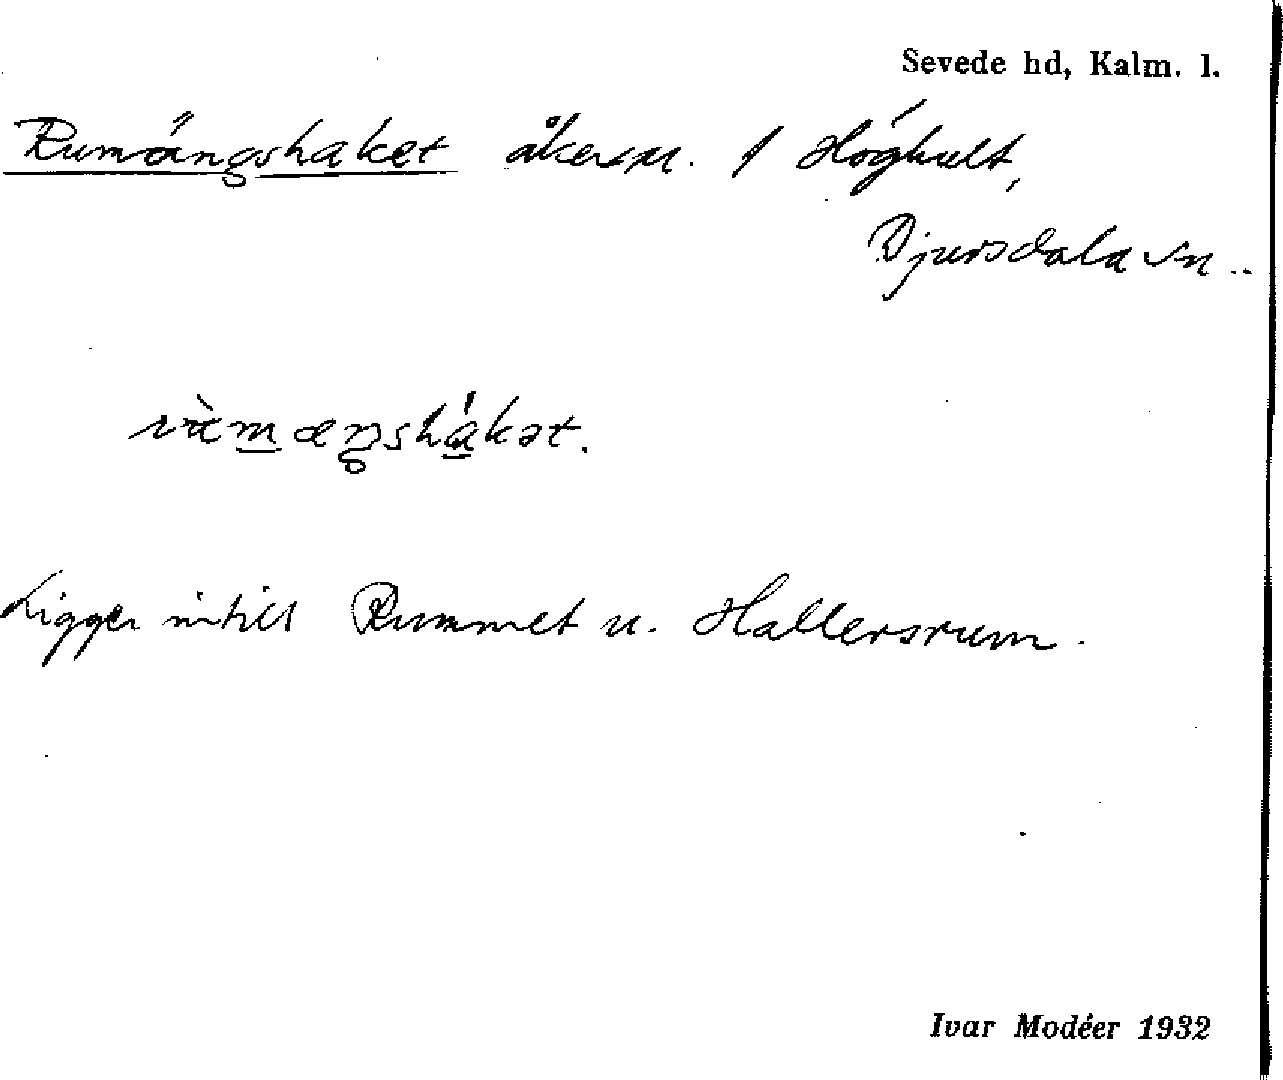 Sevede hd, Kalm. l.
Rumängshaket åkerm. / Höghult,
Djursdala sn..
rùmæŋshákət.
Ligger intill Rummet u. Hallersrum.
Ivar Modéer 1932